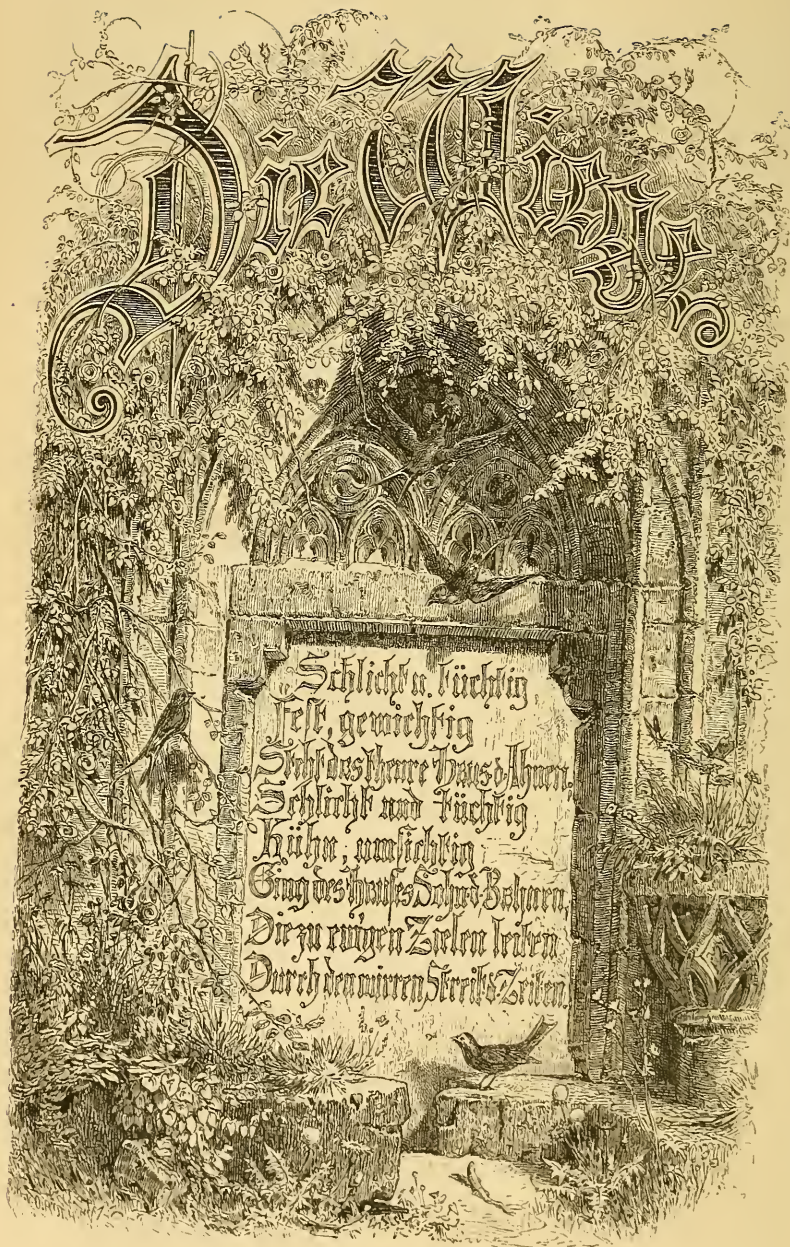 Die Wiege
Schlicht u. tüchtig
fest, gewichtig
Steht das theure Haus d. Ahnen.
Schlicht und tüchtig
Kühn, umsichtig
Ging des Hauses Bahnen,
Die zu ewigen Zielen leiten
Durch den wirren Streit d. Zeiten.